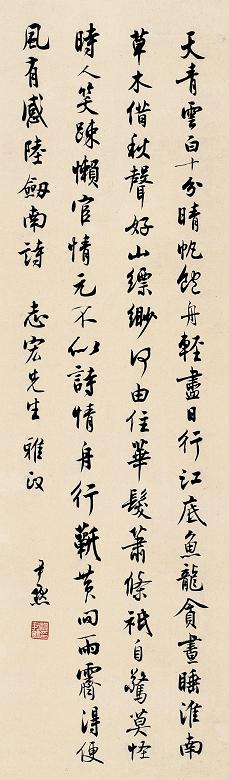 天青雲白十分晴帆飽舟輕盡日行江底魚龍貪晝睡淮南
草木借秋聲好山縹緲何由住華髮蕭條祇自驚莫怪
時人笑疎懶宦情元不似詩情舟行蘄黃間雨霽得便
風有感陸劔南詩 志宏先生雅政
尹默